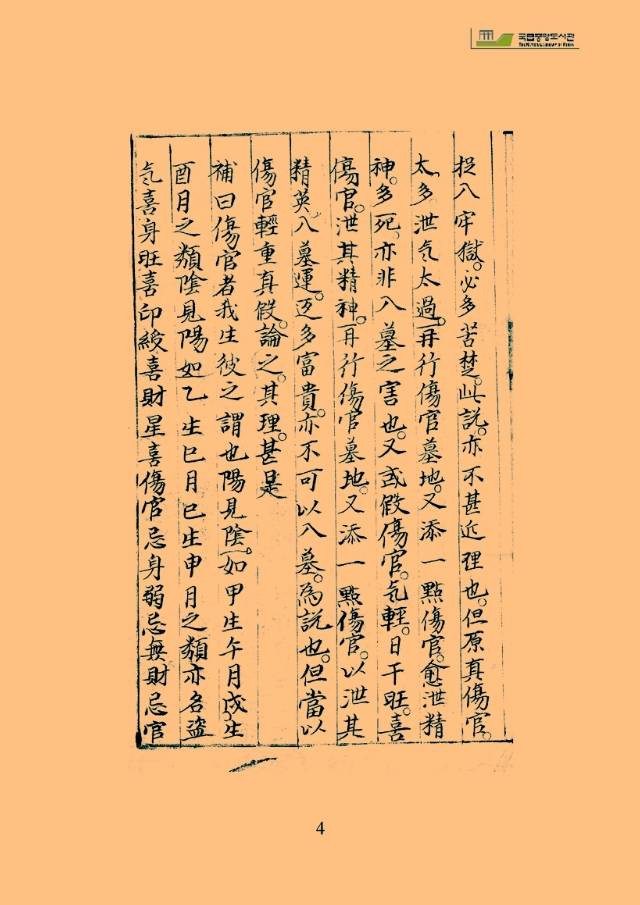 국립중앙도서관
THE NATIONAL LIBRARY OF KOREA
捉入牢獄。必多苦楚。此説。亦不甚近理也。但原真傷官。
太多泄气太過。再行傷官墓地。又添一點傷官。愈泄精
神。多死。亦非入墓之害也。又或假傷官。气輕。日干旺。喜
傷官。泄其精神。再行傷官墓地。又添一點傷官。以泄其
精英入墓運。迈多富貴。亦不可以入墓。為説也。但當以
傷官輕重真假。論之。其理。甚是
補曰傷官者我生彼之謂也陽見陰。如甲生午月戊生
酉月之類陰見陽如乙生巳月巳生申月之類亦名盜
气喜身旺喜印綬喜財星喜傷官忌身弱忌無財忌官
4